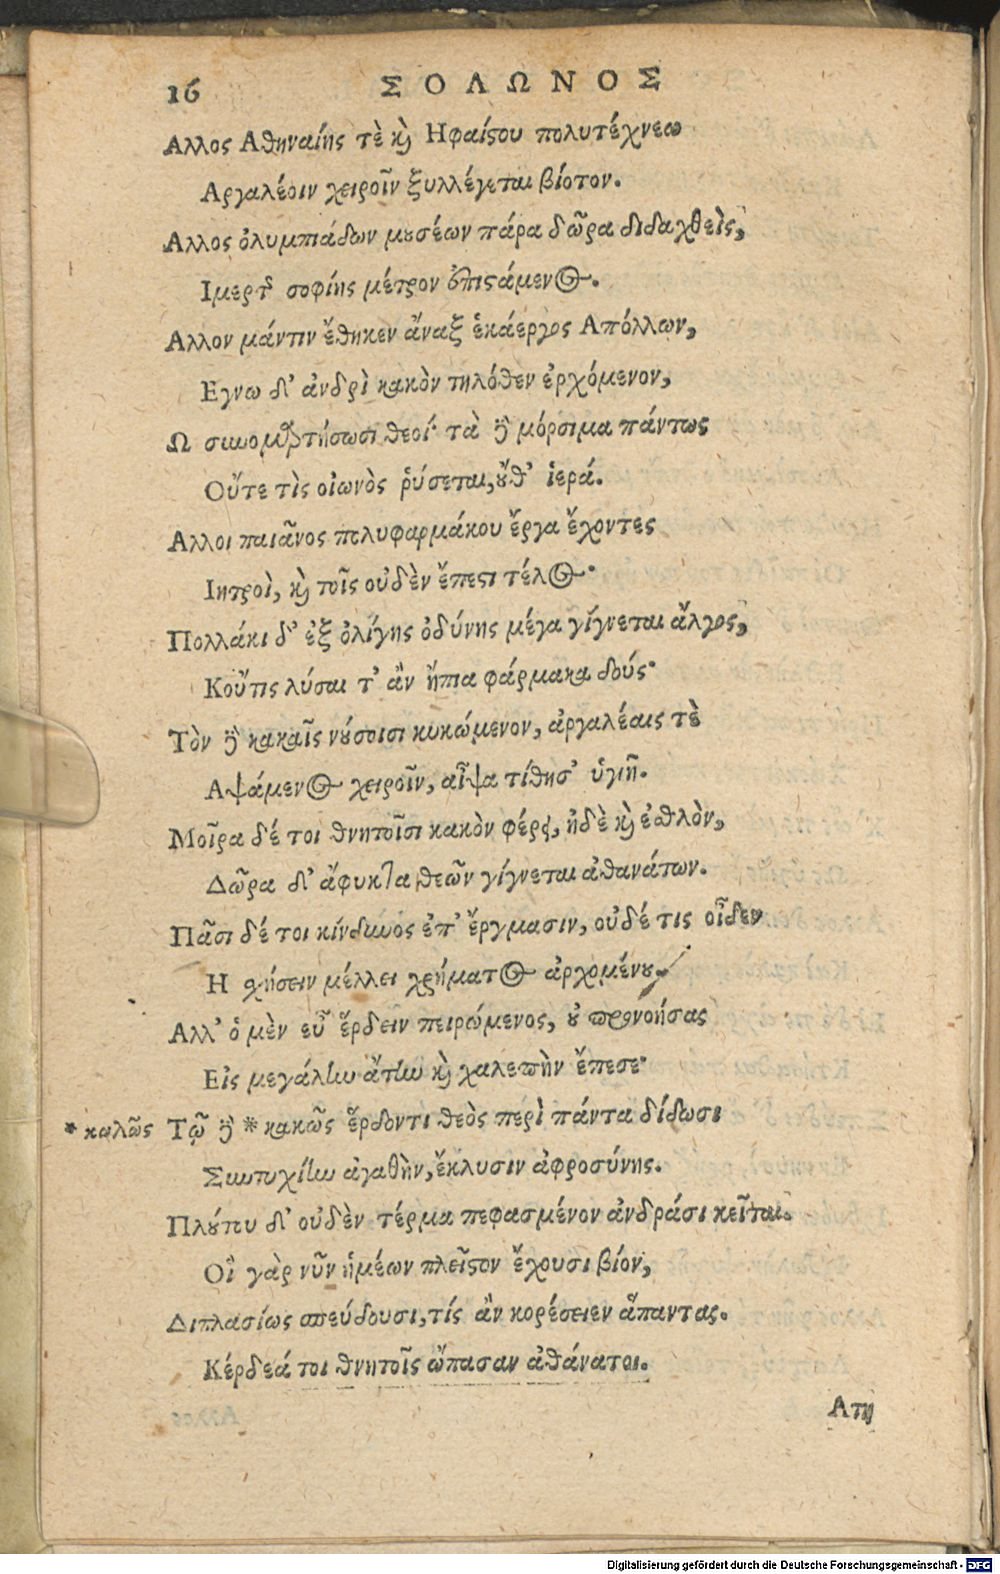 16 ΣΟΛΩΝΟΣ
Αλλος Αθηναίης τὲ κỳ Ηφαίϛου πολυτέχνεω
Αργαλέοιν χειροῖν ξυλλέγεται βίοτον.
Αλλος ὀλυμπιάδων μȣσέων πάρα δῶρα διδαχθεὶς,
Ιμερτῆς σοφίης μέτρον ἐπιϛάμενος.
Αλλον μάντιν ἔθηκεν ἄναξ ἑκάεργος Απόλλων,
Εγνω δ' ἀνδρὶ κακὸν τηλόθεν ἐρχόμενον,
Ω συνομαρτήσωσι θεοί· τὰ δὲ μόρσιμα πάντως
Οὔτε τὶς οἰωνὸς ῥύσεται, ȣ̓́θ' ἱερά.
Αλλοι παιᾶνος πολυφαρμάκου ἔργα ἔχοντες
Ιητροὶ, κỳ τοῖς οὐδὲν ἔπεϛι τέλος·
Πολλάκι δ' ἐξ ὀλίγης ὀδύνης μέγα γίγνεται ἄλγος,
Κοὔτις λύσαι τ' ἂν ἤπια φάρμακα δούς·
Τὸν δὲ κακαῖς νȣ́σοισι κυκώμενον, ἀργαλέαις τὲ
Αψάμενος χειροῖν, αἶψα τίθησ' ὑγιῆ.
Μοῖρα δέ τοι θνητοῖσι κακὸν φέρει, ἠδὲ κỳ ἐσθλὸν,
Δῶρα δ' ἄφυκτα θεῶν γίγνεται ἀθανάτων.
Πᾶσι δέ τοι κίνδυνος ἐπ' ἔργμασιν, οὐδέ τις οἶδεν
Η σχήσειν μέλλει χρήματος ἀρχομένȣ·
Αλλ' ὁ μὲν εὖ ἕρδειν πειρώμενος, ȣ̓ προνοήσας
Εἰς μεγάλην ἄτην κỳ χαλεπὴν ἔπεσε·
* καλῶς Τῷ δὲ * κακῶς ἕρδοντι θεὸς περὶ πάντα δίδωσι
Συντυχίην ἀγαθὴν, ἔκλυσιν ἀφροσύνης.
Πλȣ́του δ' οὐδὲν τέρμα πεφασμένον ἀνδράσι κεῖται.
Οἳ γὰρ νῦν ἡμέων πλεῖϛον ἔχουσι βίον,
Διπλασίως σπεύδουσι, τίς ἂν κορέσειεν ἅπαντας.
Κέρδεά τοι θνητοῖς ὤπασαν ἀθάνατοι.
Ατη
Digitalisierung gefördert durch die Deutsche Forschungsgemeinschaft - DFG